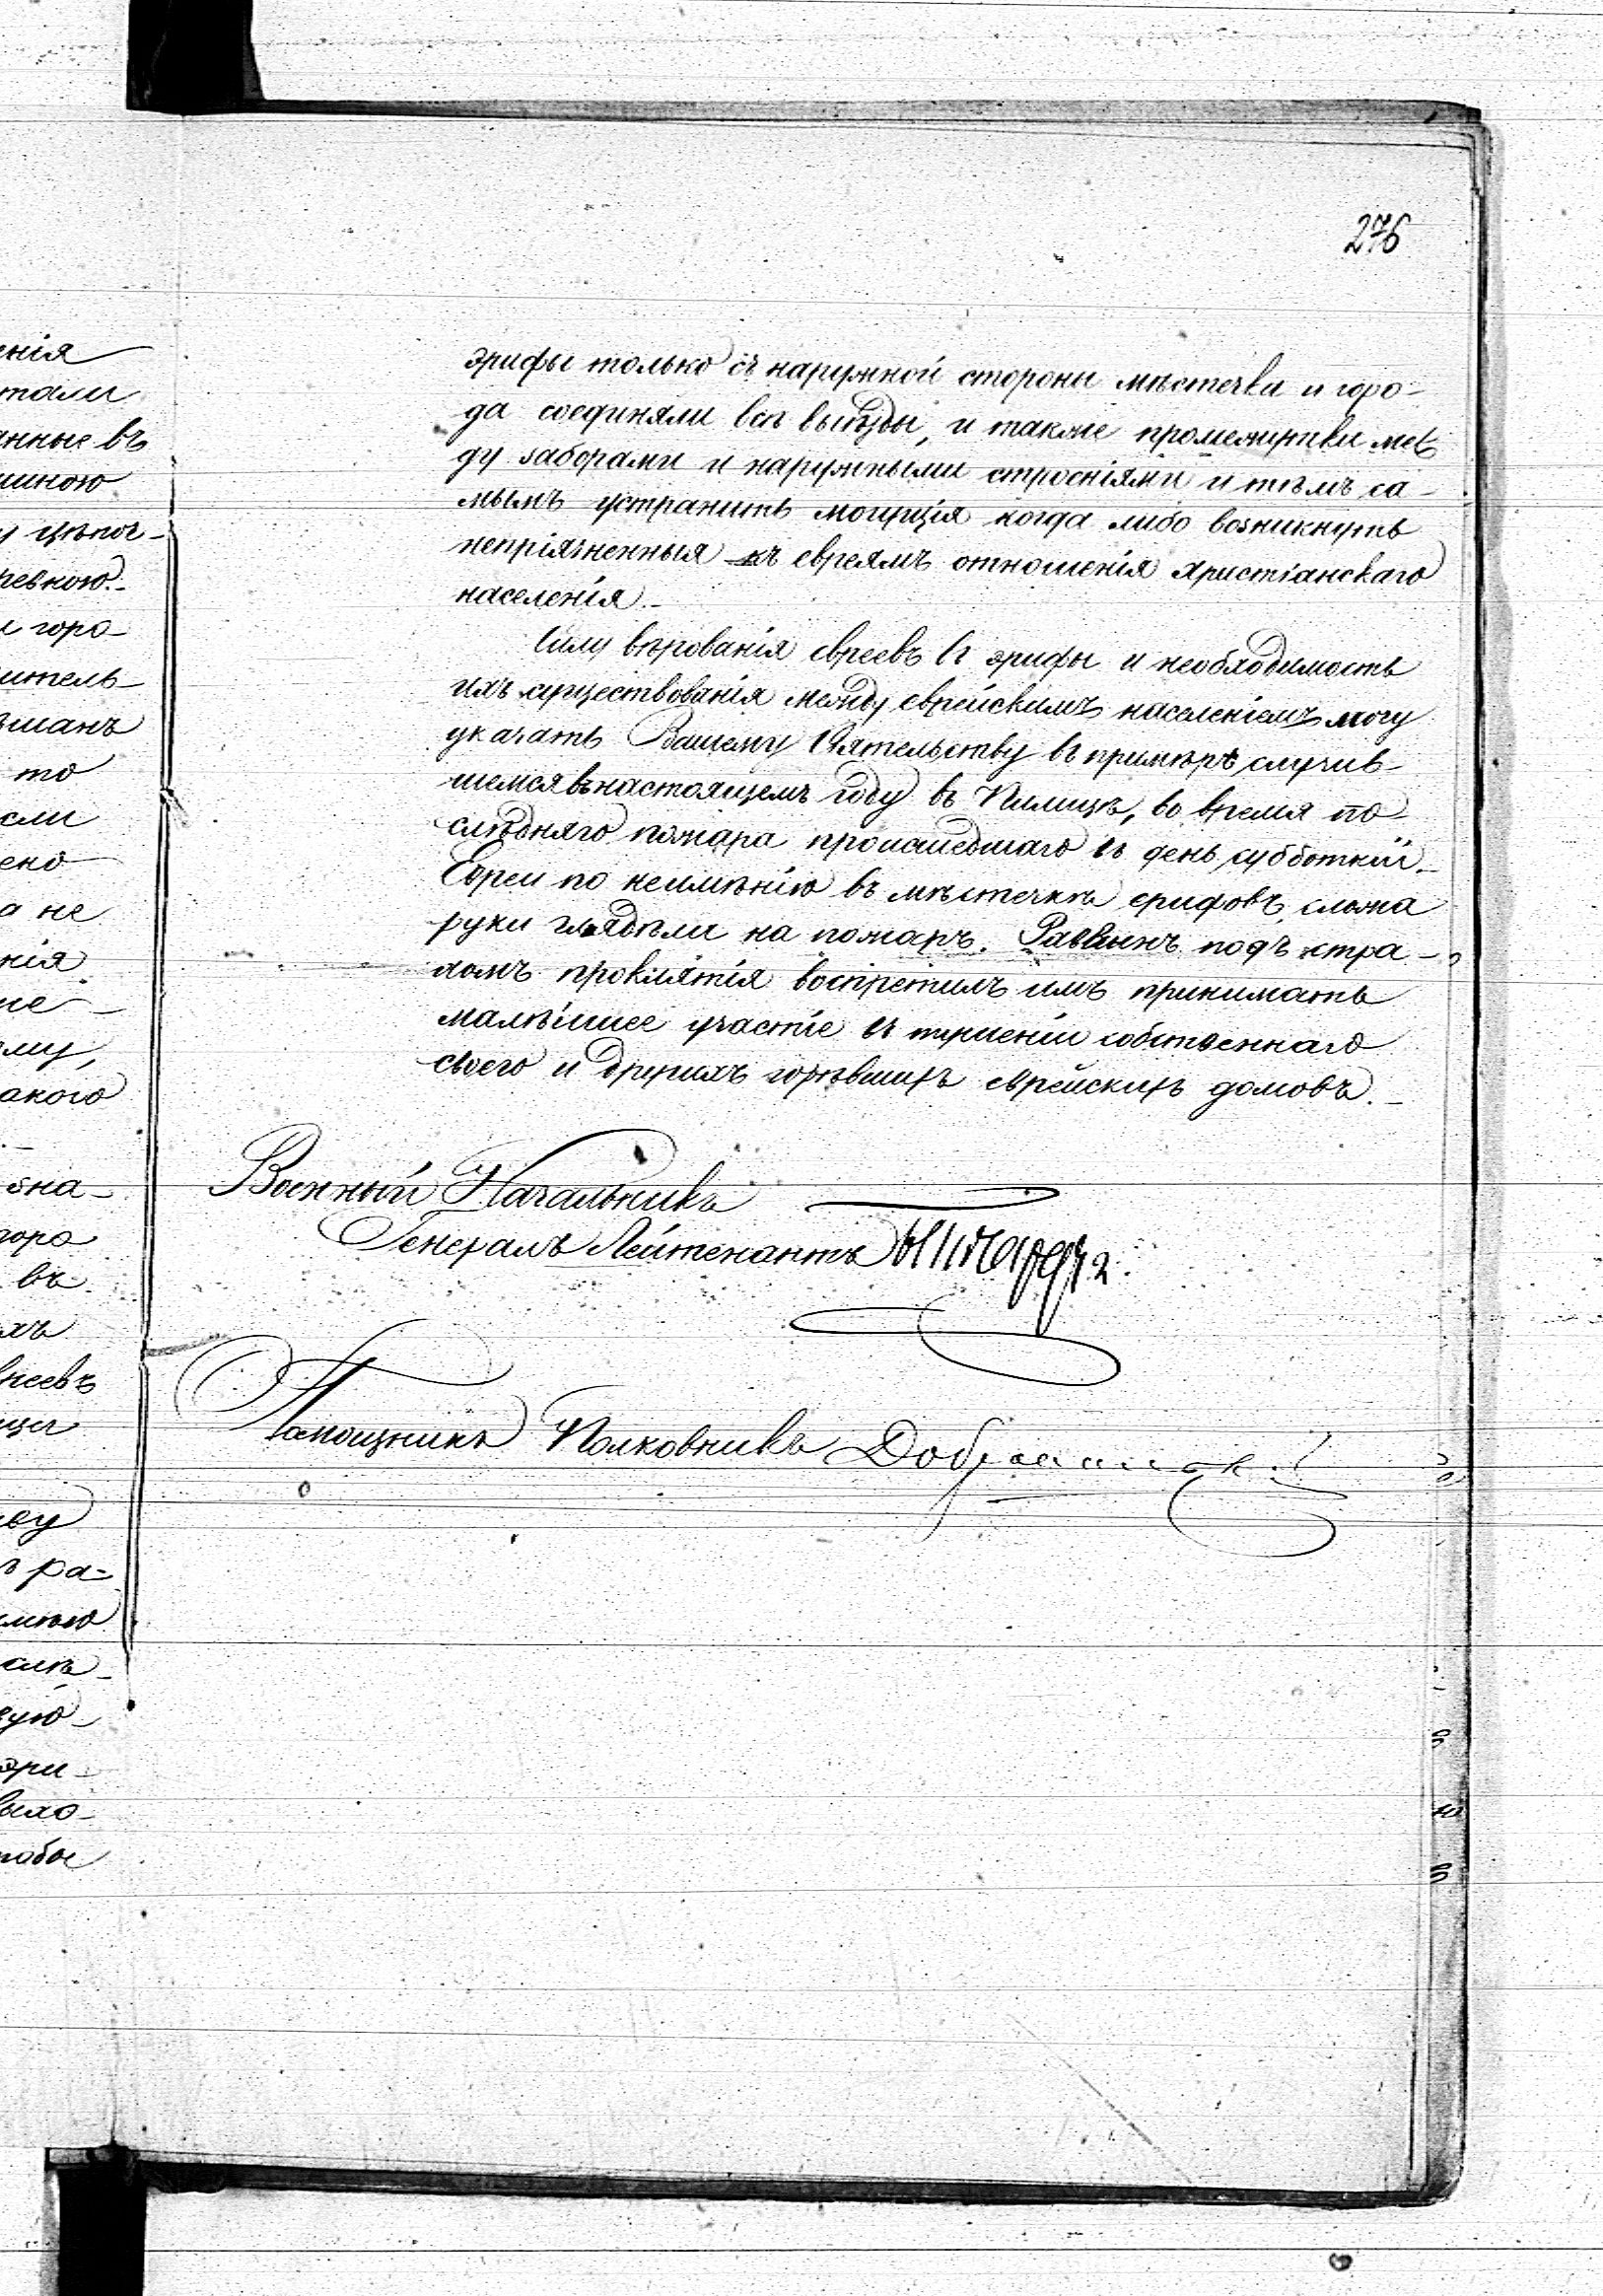 276
эрифы только съ наружной стороны мѣстечка и горо-
да соединяли всѣ выѣзды, и также промежутки меж
ду заборами и наружными строеніями и тѣмъ са-
мымъ устранить могущія когда либо возникнуть
непріязненныя къ евреямъ отношенія христіанскаго
населенія.-
Силу вѣрованія евреевъ въ эрифы и необходимость
ихъ существованія между еврейскимъ населеніемъ могу
указать Вашему Сіятельству въ примѣрѣ случив-
шемся въ настоящемъ году въ Пилицѣ, во время по-
слѣдняго пожара происшедшаго въ день субботній.-
Евреи по неимѣнію въ мѣстечкѣ ерифовъ сложа
руки глядѣли на пожаръ. Раввинъ подъ стра-
хомъ проклятія воспретилъ имъ принимать
малѣйшее участіе въ тушеніи собственнаго
своего и другихъ горѣвшихъ еврейскихъ домовъ.-
Военный Начальникъ
Генералъ Лейтенантъ
Помощникъ Полковникъ
енія
тали
анные въ
шиною
у цѣпоч-
ревкою.-
и горо-
итель-
то
если
ено
а не
нія
ому,
акого
зна-
гора
въ
ихъ
еевъ
ву
ъ ра-
эри-